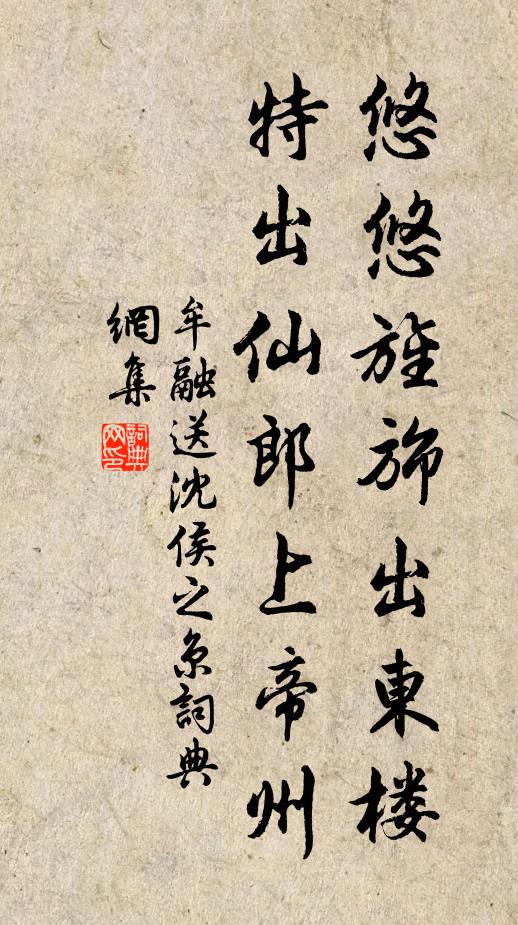 悠悠旌旆出東楼
特出仙郎上帝州
牟融送沈侯之京詞典
網集
詞典网印